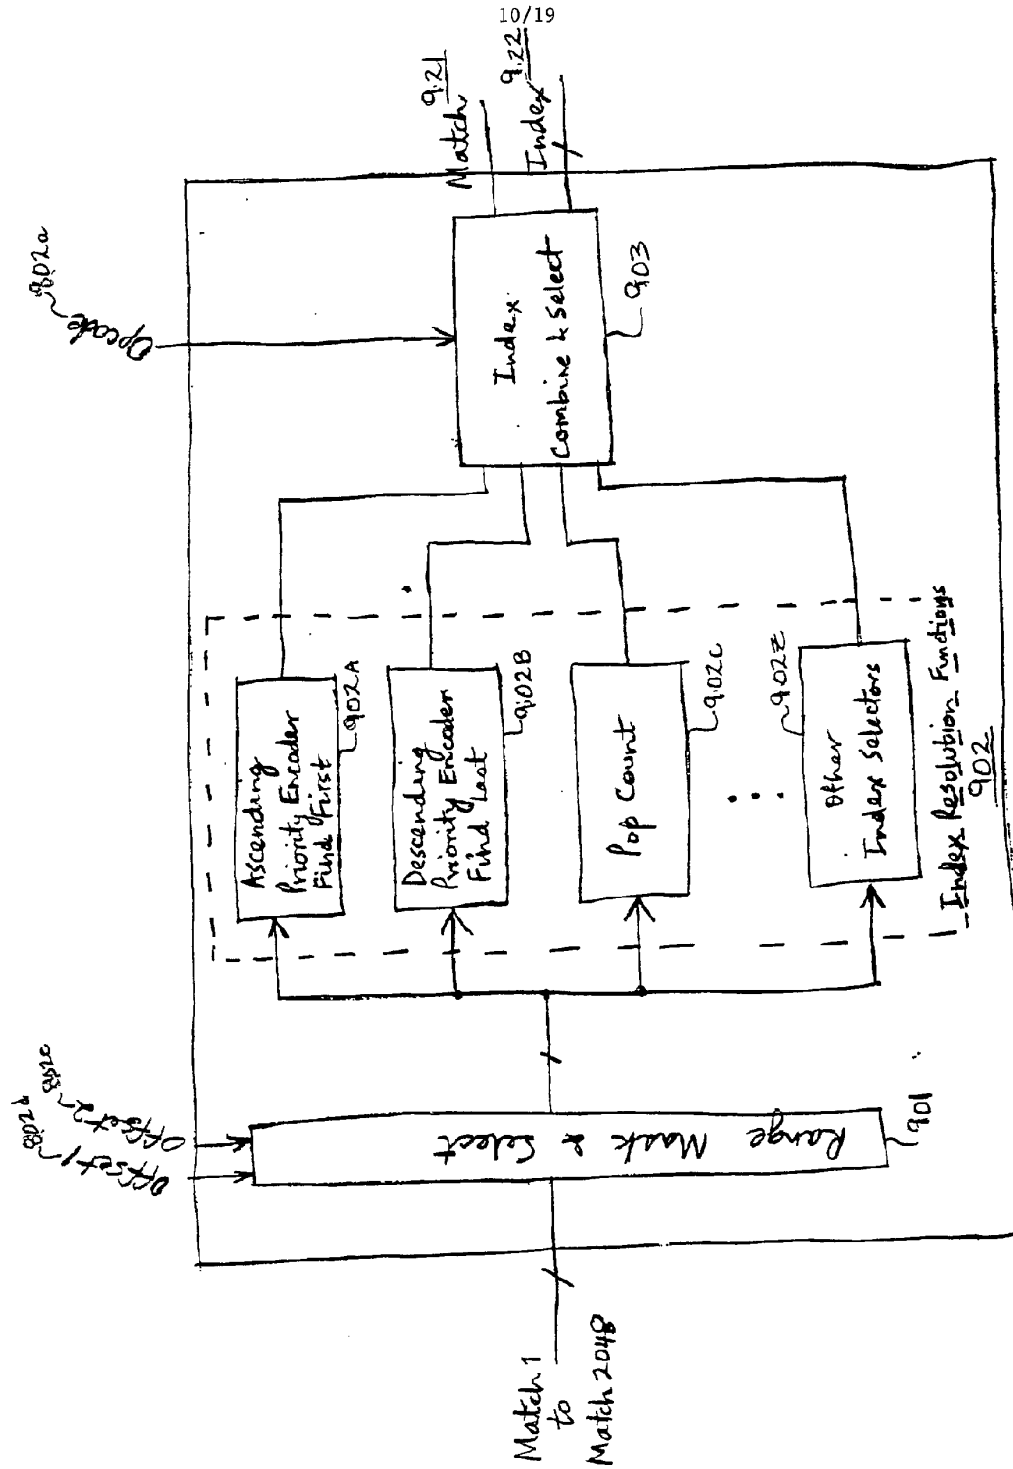 10/19
Match 1
to
Match 2048
Offset1 802b
Offset2 802c
Range Mask & Select
901
Ascending
Priority Encoder
Find First
902A
Descending
Priority Encoder
Find Last
902B
Pop Count
902C
...
Other
Index Selectors
902Z
Index Resolution Functions
902
Opcode 802a
Index
Combine & Select
903
Match 921
Index 922